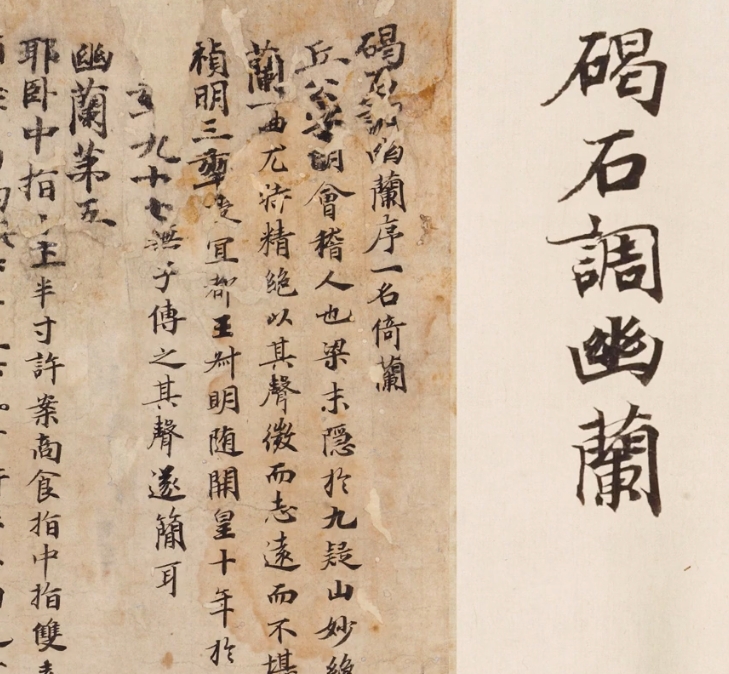 碣石調幽蘭
碣石調幽蘭序一名倚蘭
丘公字明會稽人也梁末隱於九疑山妙絕
蘭一曲尤特精絕以其聲微而志遠而不堪
禎明三年授宜都王叔明随開皇十年於
九十七無子傳之其聲遂簡耳
幽蘭第五
耶卧中指上半寸許案商食指中指雙